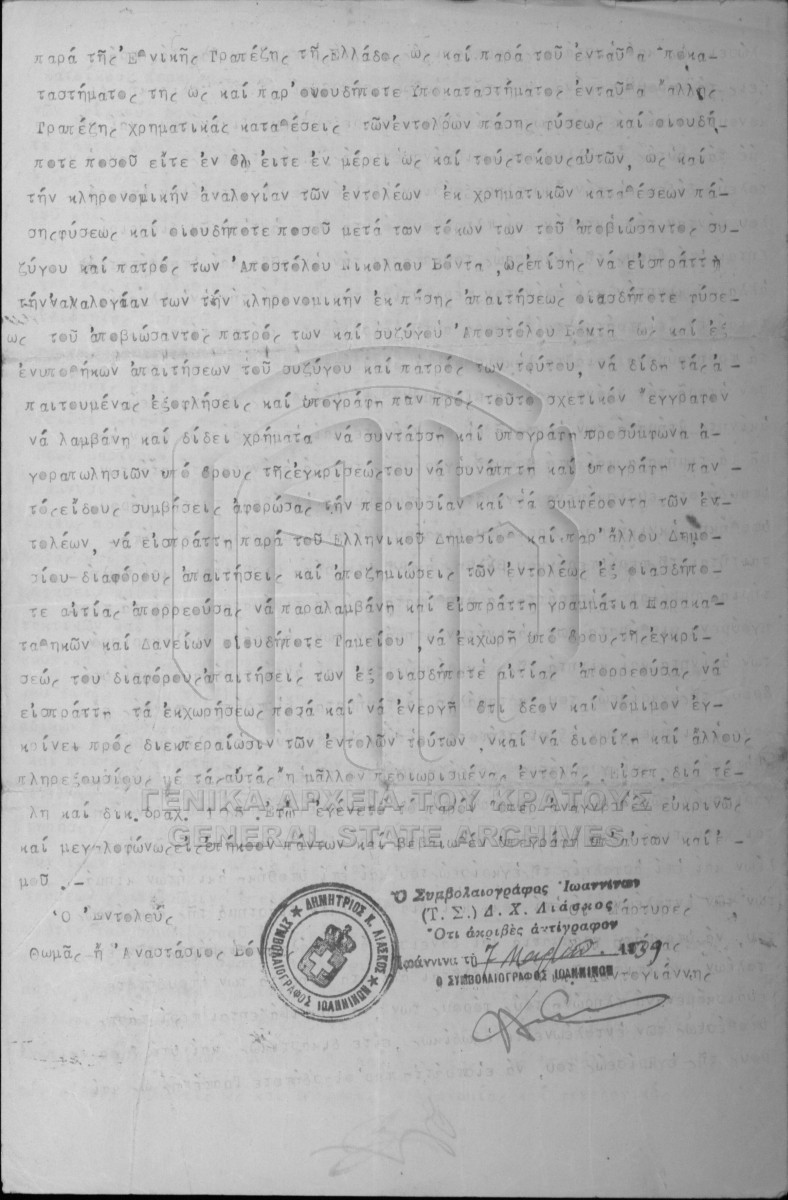 παρά τῆς Ἐθνικῆς Τραπέζης τῆςἙλλάδος ὡς καί παρά τοῦ ἐνταῦθα Ὑποκα-
ταστήματος της ὡς καί παρ'οἱουδήποτε Ὑποκαταστήματος ἐνταῦθα ἄλλης
Τραπέζης χρηματικάς καταθέσεις τῶνἐντολέων πάσης φύσεως καί οἱουδή-
ποτε ποσοῦ εἴτε ἐν ὅλῳ εἴτε ἐν μέρει ὡς καί τούςτόκουςαὐτῶν, ὡς καί
τήν κληρονομικήν ἀναλογίαν τῶν ἐντολέων ἐκ χρηματικῶν καταθέσεων πά-
σηςφύσεως καί οἱουδήποτε ποσοῦ μετά των τόκων των τοῦ ἀποβιώσαντος συ-
ζύγου καί πατρός των Ἀποστόλου Νικολάου Βόντα ,ὡςἐπίσης νά εἰσπράττῃ
τήνἀναλογίαν των τήν κληρονομικήν ἐκ πάσης ἀπαιτήσεως οἱασδήποτε φύσε-
ως τοῦ ἀποβιώσαντος πατρός των καί συζύγου Ἀποστόλου Βόντα ὡς καί ἐξ
ἐνυποθήκων ἀπαιτήσεων τοῦ συζύγου καί πατρός των τούτου, νά δίδῃ τάςἀ-
παιτουμένας ἐξοφλήσεις καί ὑπογράφῃ παν πρός τοῦτο σχετικόν ἔγγραφον
νά λαμβάνῃ καί δίδει χρήματα νά συντάσσῃ καί ὑπογράφῃ προσύμφωνα ἀ-
γοραπωλησιῶν ὑπό ὅρους τῆςἐγκρίσεώςτου νά συνάπτῃ καί ὑπογράφῃ παν-
τόςείδους συμβάσεις ἀφορώσας τήν περιουσίαν καί τά συμφέροντα τῶν ἐν-
τολέων, νά εἰσπράττῃ παρά τοῦ Ἑλληνικοῦ Δημοσίου καί παρ'ἄλλου Δημο-
σίου διαφόρους ἀπαιτήσεις καί ἀποζημιώσεις τῶν ἐντολέως ἐξ οἱασδήπο-
τε αἰτίας ἀπορρεούσας νά παραλαμβάνῃ καί εἰσπράττῃ γραμμάτια Παρακα-
ταθηκῶν καί Δανείων οἱουδήποτε Ταμείου ,νά ἐκχωρῇ ὑπό ὅρουςτῆςἐγκρί-
σεώς του διαφόρουςἀπαιτήσεις των ἐξ οἱασδήποτε αἰτίας ἀπορρεούσας νά
εἰσπράττῃ τά ἐκχωρήσεως ποσά καί νά ἐνεργῇ ὅτι δέον καί νόμιμον ἐγ-
κρίνει πρός διεκπεραίωσιν τῶν ἐντολῶν τούτων ,νκαί νά διορίζῃ καί ἄλλους
πληρεξουσίους μέ τάςαὐτάς ἤ μᾶλλον περιωρισμένας ἐντολάς. Εἰσεπ. διά τέ-
λη καί δικ. δραχ. 195. Ἐφ'ᾧ ἐγένετο τό παρόν ὅπερ ἀναγνωσθέν εὐκρινῶς
καί μεγαλοφώνωςεἰς ἐπήκοον πάντων καί βεβαιωθέν ὑπεγράφη ὑπ'αὐτῶν καί ἐ-
μοῦ .-
ΓΕΝΙΚΑ ΑΡΧΕΙΑ ΤΟΥ ΚΡΑΤΟΥΣ
GENERAL STATE ARCHIVES
Ὁ Ἐντολεύς
Θωμᾶς ἤ Ἀναστάσιος Βόντας
μάρτυρες
Ὁ Συμβολαιογράφος Ἰωαννίνων
(Τ. Σ.) Δ. Χ. Λιάσκος
Ὅτι ἀκριβές ἀντίγραφον
Ἰωάννινα τῇ 7 Μαρτίου 1939
Ο ΣΥΜΒΟΛΑΙΟΓΡΑΦΟΣ ΙΩΑΝΝΙΝΩΝ
ΔΗΜΗΤΡΙΟΣ Χ. ΛΙΑΣΚΟΣ
ΣΥΜΒΟΛΑΙΟΓΡΑΦΟΣ ΙΩΑΝΝΙΝΩΝ